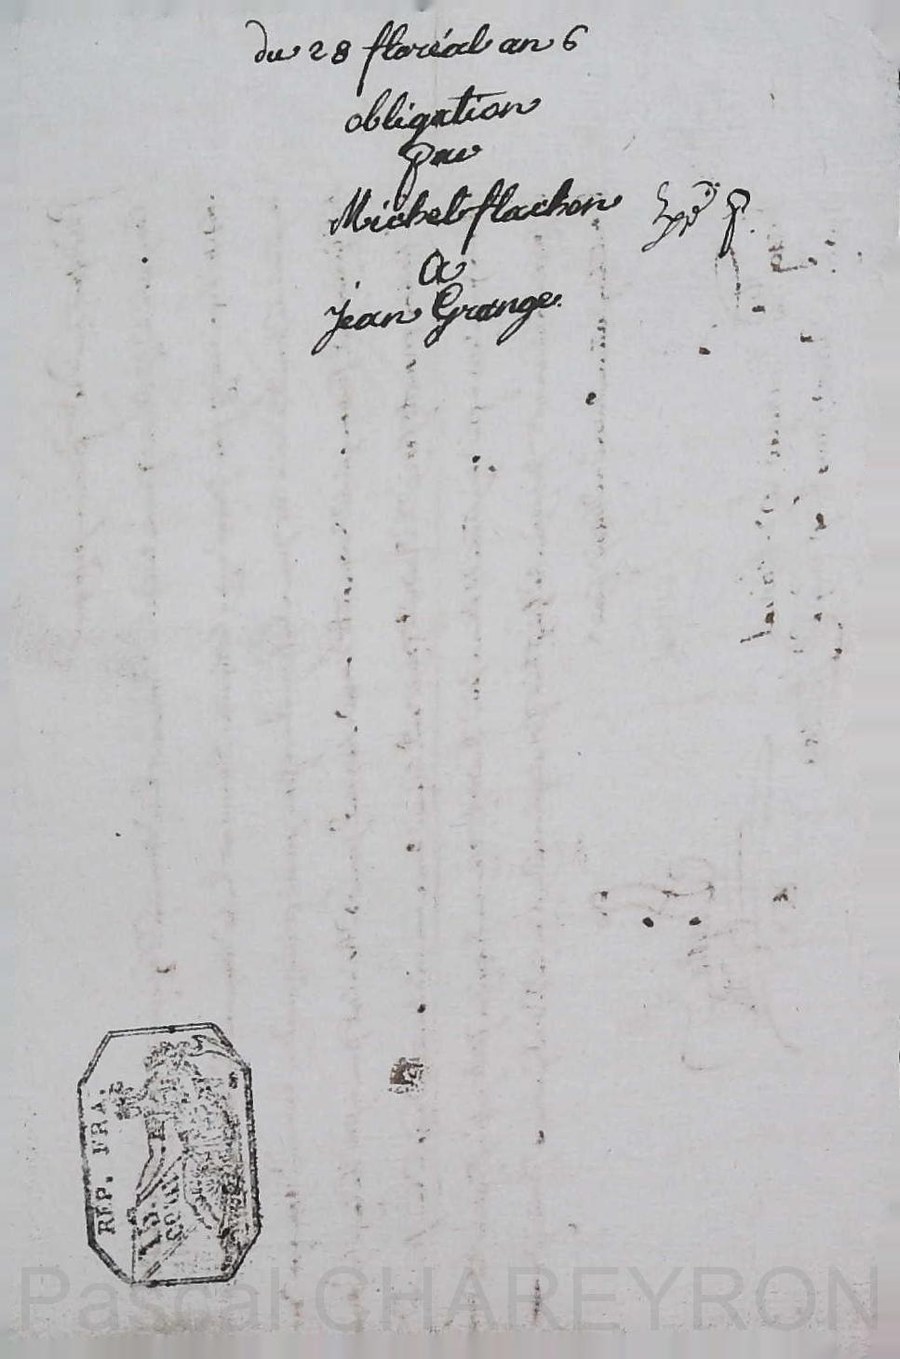 du 28 floréal an 6
obligation
par
Michel flachon
a
jean Grange.
REP. FRA.
Pascal CHAREYRON